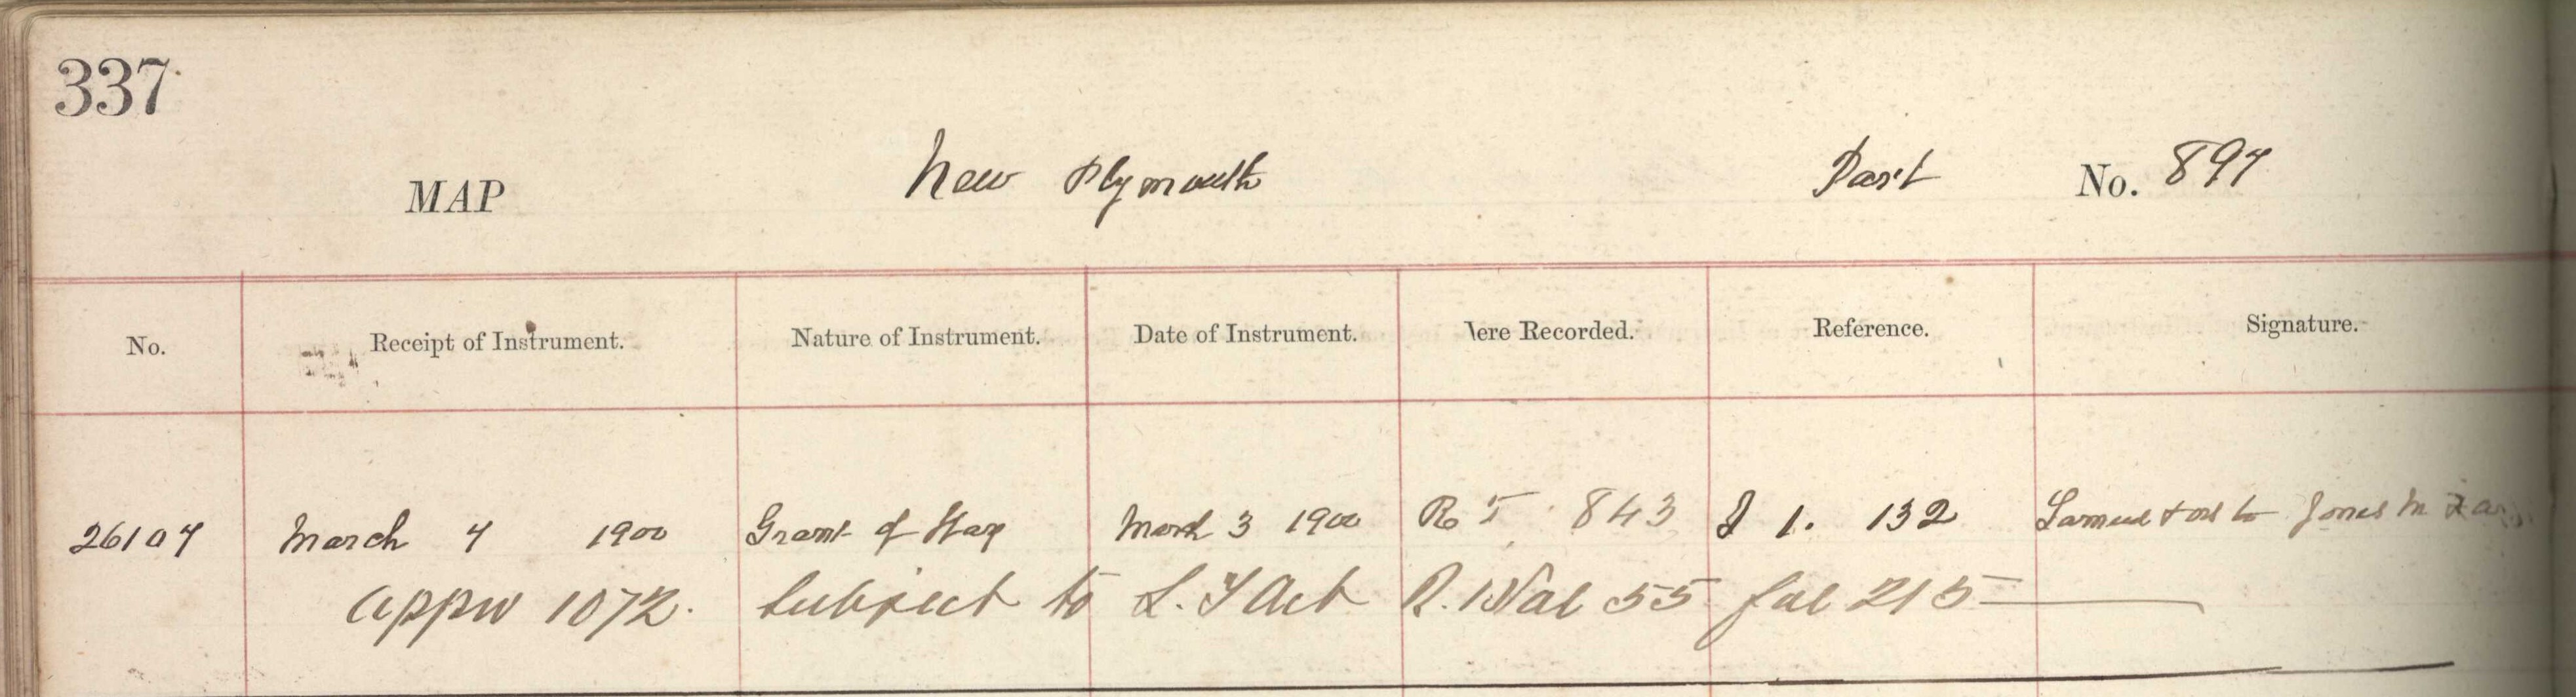 337
MAP New Plymouth Part No. 897
No. Receipt of Instrument. Nature of Instrument. Date of Instrument. Were Recorded. Reference. Signature.
26107 March 7 1900 Grant of Way March 3 1900 843 I 1. 132 Samuel to Jones
appn 1072. Subject to L. T Act R. Vol 55 fol 215